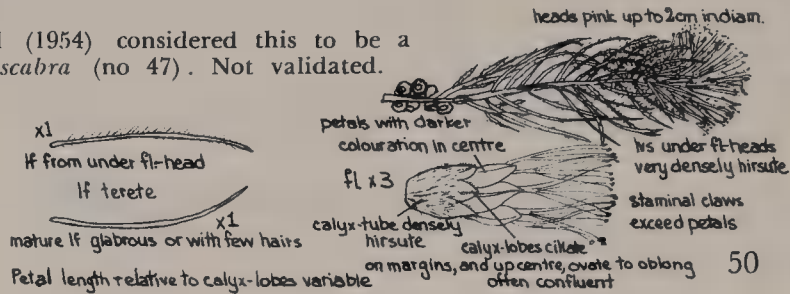 (1954) considered this to be a
scabra (no 47). Not validated.
heads pink up to 2cm in diam.
x1
lf from under fl-head
lf terete
x1
mature lf glabrous or with few hairs
Petal length relative to calyx-lobes variable
petals with darker
colouration in centre
fl x3
calyx-tube densely
hirsute
calyx-lobes ciliate
on margins, and up centre, ovate to oblong
often confluent
lvs under fl-heads
very densely hirsute
staminal claws
exceed petals
50